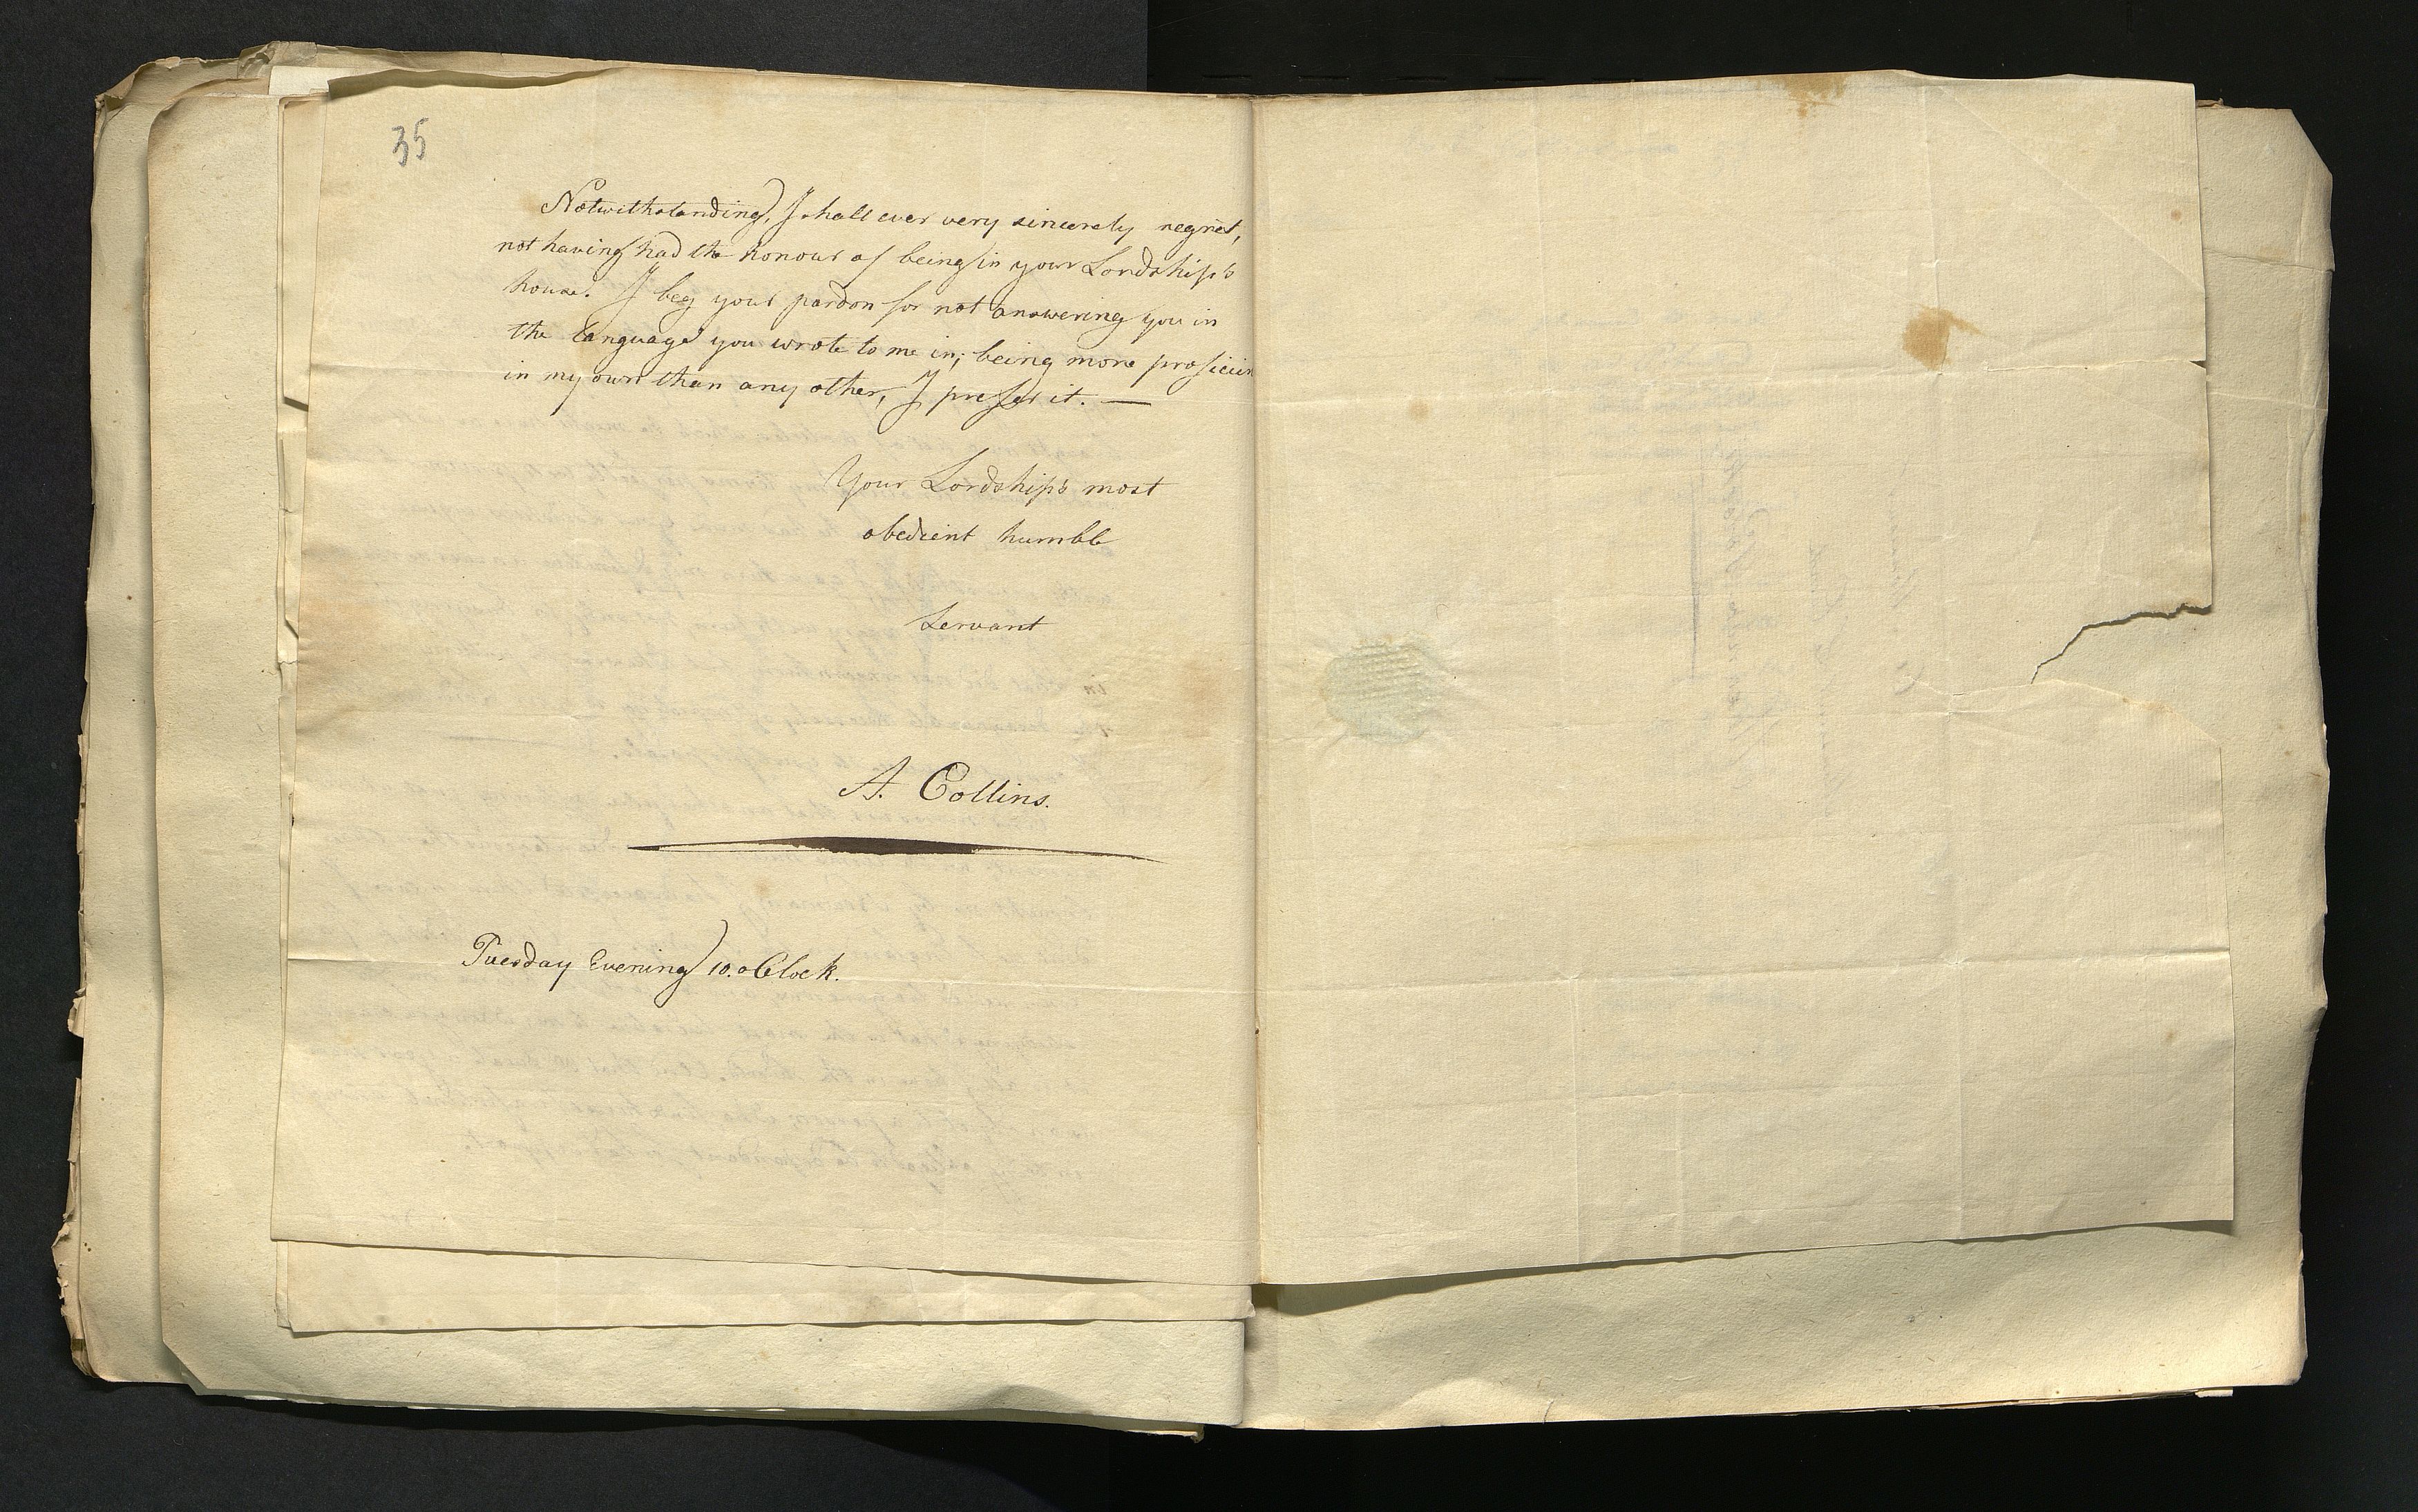 35
Notwithstanding, I shall ever very sincerely regret,
not having had the honour of being in your Lordship's
house. I beg your pardon for not answering you in
the language you wrote to me in; being more proficien
in my own than any other, I prefer it. —
Your Lordship's most
obedient humble
Servant
A. Collins.
Tuesday Evening 10. oClock.